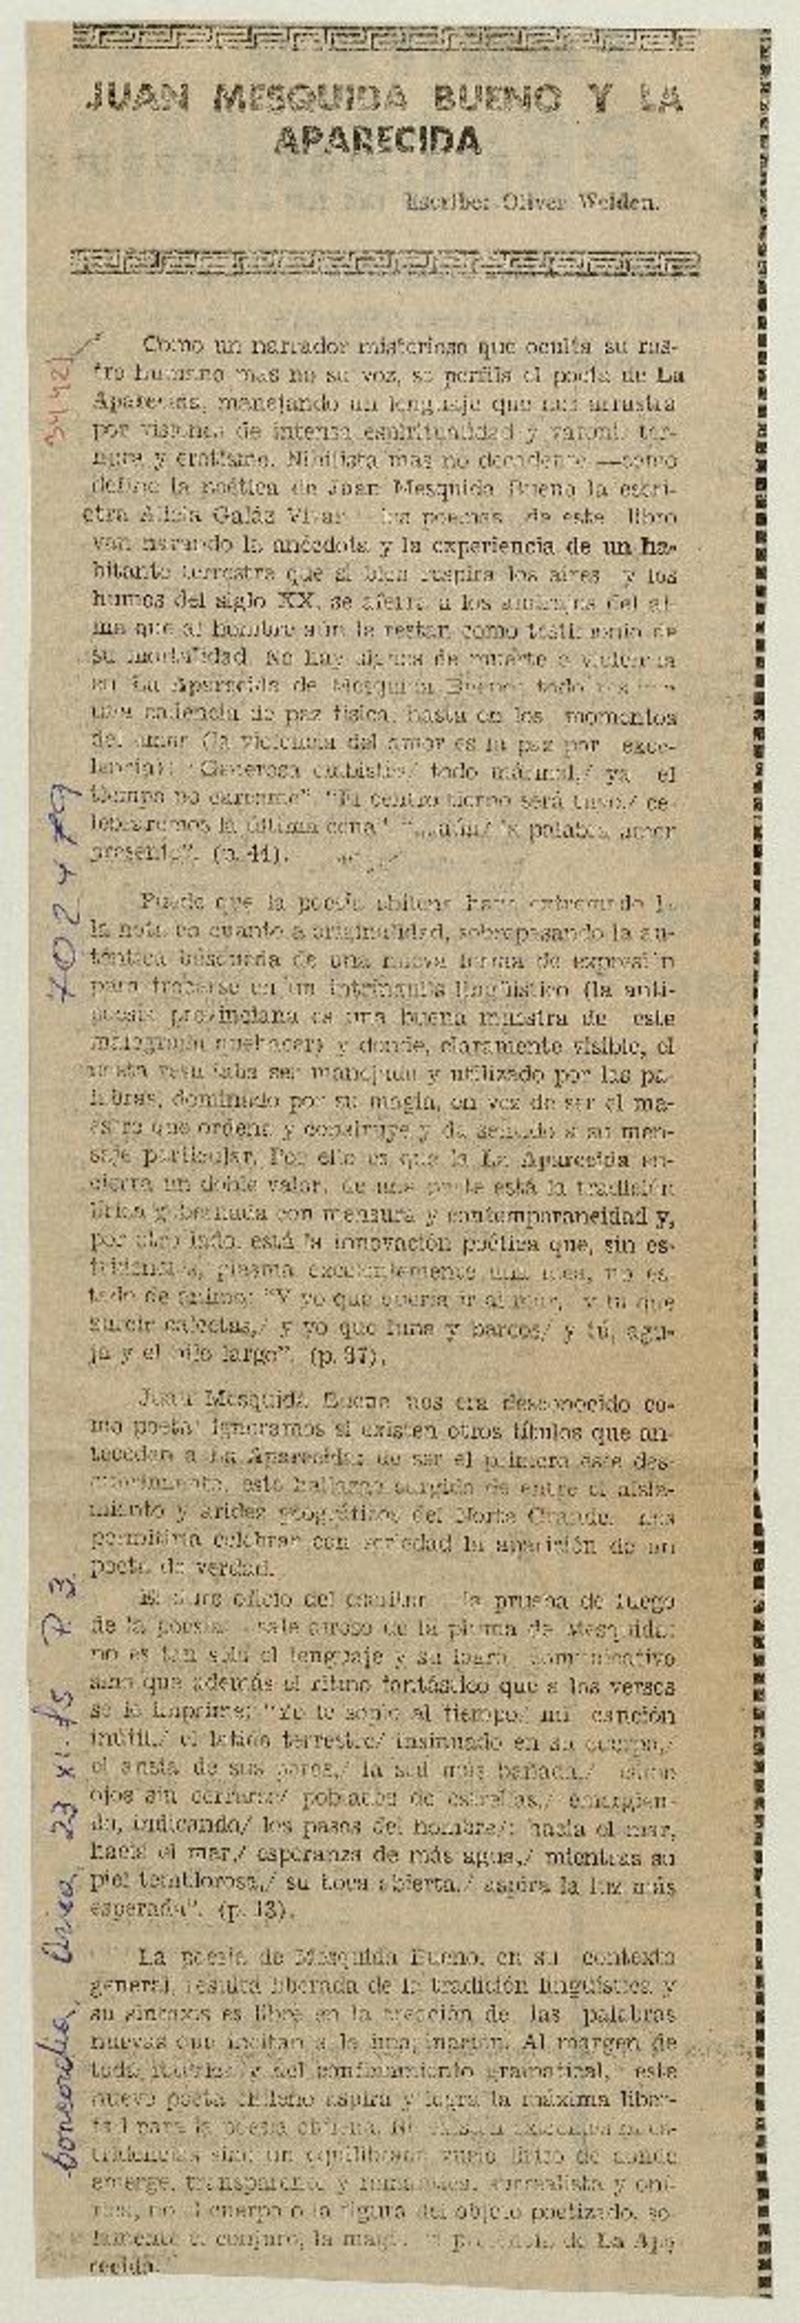 JUAN MESQUIDA BUENO Y LA
APARECIDA
Escribe: Oliver Welden.
Como un narrador misterioso que oculta su ros-
tro humano mas no su voz, se perfila el poeta de La
Aparecida, manejando un lenguaje que nos arrastra
por visiones de intensa espiritualidad y varonil ter-
nura y erotismo. Nihilista mas no decadente —como
define la poética de Juan Mesquida Bueno la escri-
tora Alicia Galaz Vivar— los poemas de este libro
van narrando la anécdota y la experiencia de un ha-
bitante terrestre que si bien respira los aires y los
humos del siglo XX, se aferra a los andrajos del al-
ma que al hombre aún le restan como testimonio de
su mortalidad. No hay signos de muerte o violencia
en La Aparecida de Mesquida Bueno: todo
una caliencia de paz física, hasta en los momentos
del amor (la violencia del amor es la paz por exce-
lencia): "Generosa embistes/ todo mármol,/ ya el
tiempo no exonme". "El centro tierno será tuyo/ ce-
lebraremos la última cena" "...aún/ la palabra amor
presente". (p. 44).
Puede que la poesía chilena haya extremado la
la nota en cuanto a originalidad, sobrepasando la au-
téntica búsqueda de una nueva forma de expresión
para trabarse en un intríngulis lingüístico (la anti-
poesía provinciana es una buena muestra de este
malogrado quehacer) y donde, claramente visible, el
poeta resultaba ser manejado y utilizado por las pa-
labras, dominado por su magia, en vez de ser el ma-
estro que ordena y construye y da sentido a su men-
saje particular. Por ello es que la La Aparecida en-
cierra un doble valor, de una parte está la tradición
lírica gobernada con mensura y contemporaneidad y,
por otro lado, está la innovación poética que, sin es-
tridencias, plasma excelentemente una idea, un es-
tado de ánimo: "Y yo que quería ir al mar, y tú que
surcir calcetas,/ y yo que luna y barcos/ y tú, agu-
ja y el hilo largo". (p. 37).
Juan Mesquida Bueno nos era desconocido co-
mo poeta: ignoramos si existen otros títulos que an-
tecedan a La Aparecida: de ser el primero este des-
cubrimiento, este hallazgo surgido de entre el aisla-
miento y aridez geográficos del Norte Grande, nos
permitiría celebrar con seriedad la aparición de un
poeta de verdad.
El duro oficio del escritor —la prueba de fuego
de la poesía— sale airoso de la pluma de Mesquida:
no es tan sólo el lenguaje y su logro comunicativo
sino que además el ritmo fantástico que a los versos
se le imprime: "Yo te soplo al tiempo/ mi canción
inútil,/ el latido terrestre/ insinuado en su cuerpo,/
el ansia de sus poros,/ la sed más bañada,/
ojos sin cerrarse/ poblados de estrellas,/ emergien-
do, indicando/ los pasos del hombre/: hacia el mar,
hacia el mar,/ esperanza de más agua,/ mientras su
piel temblorosa,/ su boca abierta,/ aspira la luz más
esperada". (p. 13).
La poesía de Mesquida Bueno, en su contexto
general, resulta liberada de la tradición lingüística y
su sintaxis es libre en la creación de las palabras
nuevas que incitan a la imaginación. Al margen de
toda y del confinamiento gramatical, este
nuevo poeta chileno aspira y logra la máxima liber-
tad para la poesía chilena. Ni existen extremos ni es-
tridencias sino un equilibrado vuelo lírico de donde
emerge, transparente y romántica, surrealista y oní-
rica, no el cuerpo o la figura del objeto poetizado, so-
lamente el conjuro, la magia, la presencia de La Apa
recida.
Concordia, Arica, 23-XI-75 P. 3.
702479